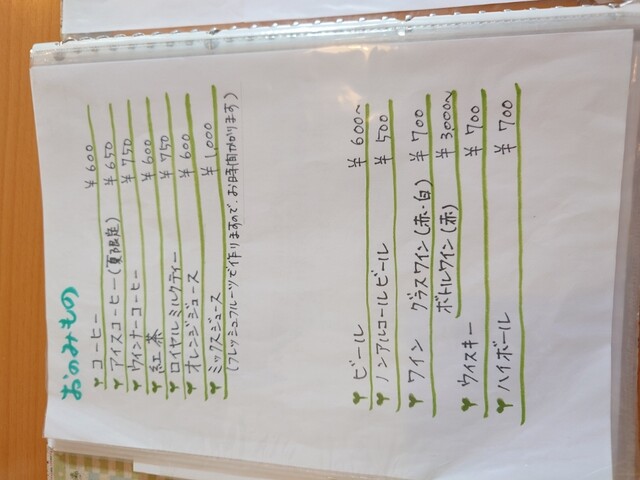 おのみもの
コーヒー ￥600
アイスコーヒー(夏限定) ￥650
ウィンナーコーヒー ￥750
紅茶 ￥600
ロイヤルミルクティー ￥750
オレンジジュース ￥600
ミックスジュース ￥1,000
(フレッシュフルーツで作りますので、お時間かかります)
ビール ￥600〜
ノンアルコールビール ￥500
ワイン グラスワイン(赤・白) ￥700
ボトルワイン(赤) ￥3,000〜
ウィスキー ￥700
ハイボール ￥700